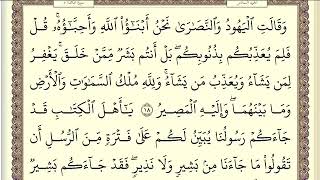 الجزء السادس
سورة المائدة
وَقَالَتِ ٱلۡيَهُودُ وَٱلنَّصَٰرَىٰ نَحۡنُ أَبۡنَٰٓؤُاْ ٱللَّهِ وَأَحِبَّٰٓؤُهُۥۚ قُلۡ
فَلِمَ يُعَذِّبُكُم بِذُنُوبِكُمۖ بَلۡ أَنتُم بَشَرٞ مِّمَّنۡ خَلَقَۚ يَغۡفِرُ
لِمَن يَشَآءُ وَيُعَذِّبُ مَن يَشَآءُۚ وَلِلَّهِ مُلۡكُ ٱلسَّمَٰوَٰتِ وَٱلۡأَرۡضِ
وَمَا بَيۡنَهُمَاۖ وَإِلَيۡهِ ٱلۡمَصِيرُ ١٨ يَٰٓأَهۡلَ ٱلۡكِتَٰبِ قَدۡ
جَآءَكُمۡ رَسُولُنَا يُبَيِّنُ لَكُمۡ عَلَىٰ فَتۡرَةٖ مِّنَ ٱلرُّسُلِ أَن
تَقُولُواْ مَا جَآءَنَا مِنۢ بَشِيرٖ وَلَا نَذِيرٖۖ فَقَدۡ جَآءَكُم بَشِيرٞ